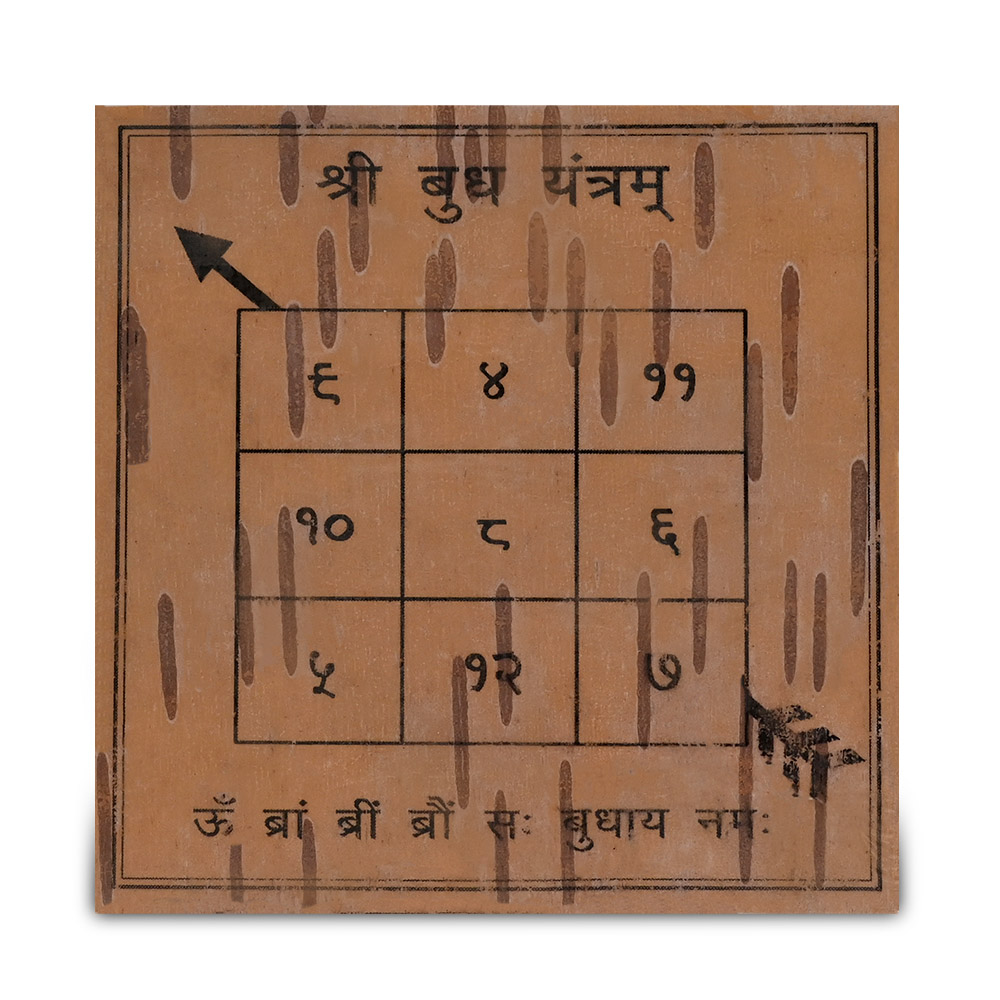 श्री बुध यंत्रम्
९ ४ ११
१० ८ ६
५ १२ ७
ॐ ब्रां ब्रीं ब्रौं सः बुधाय नमः